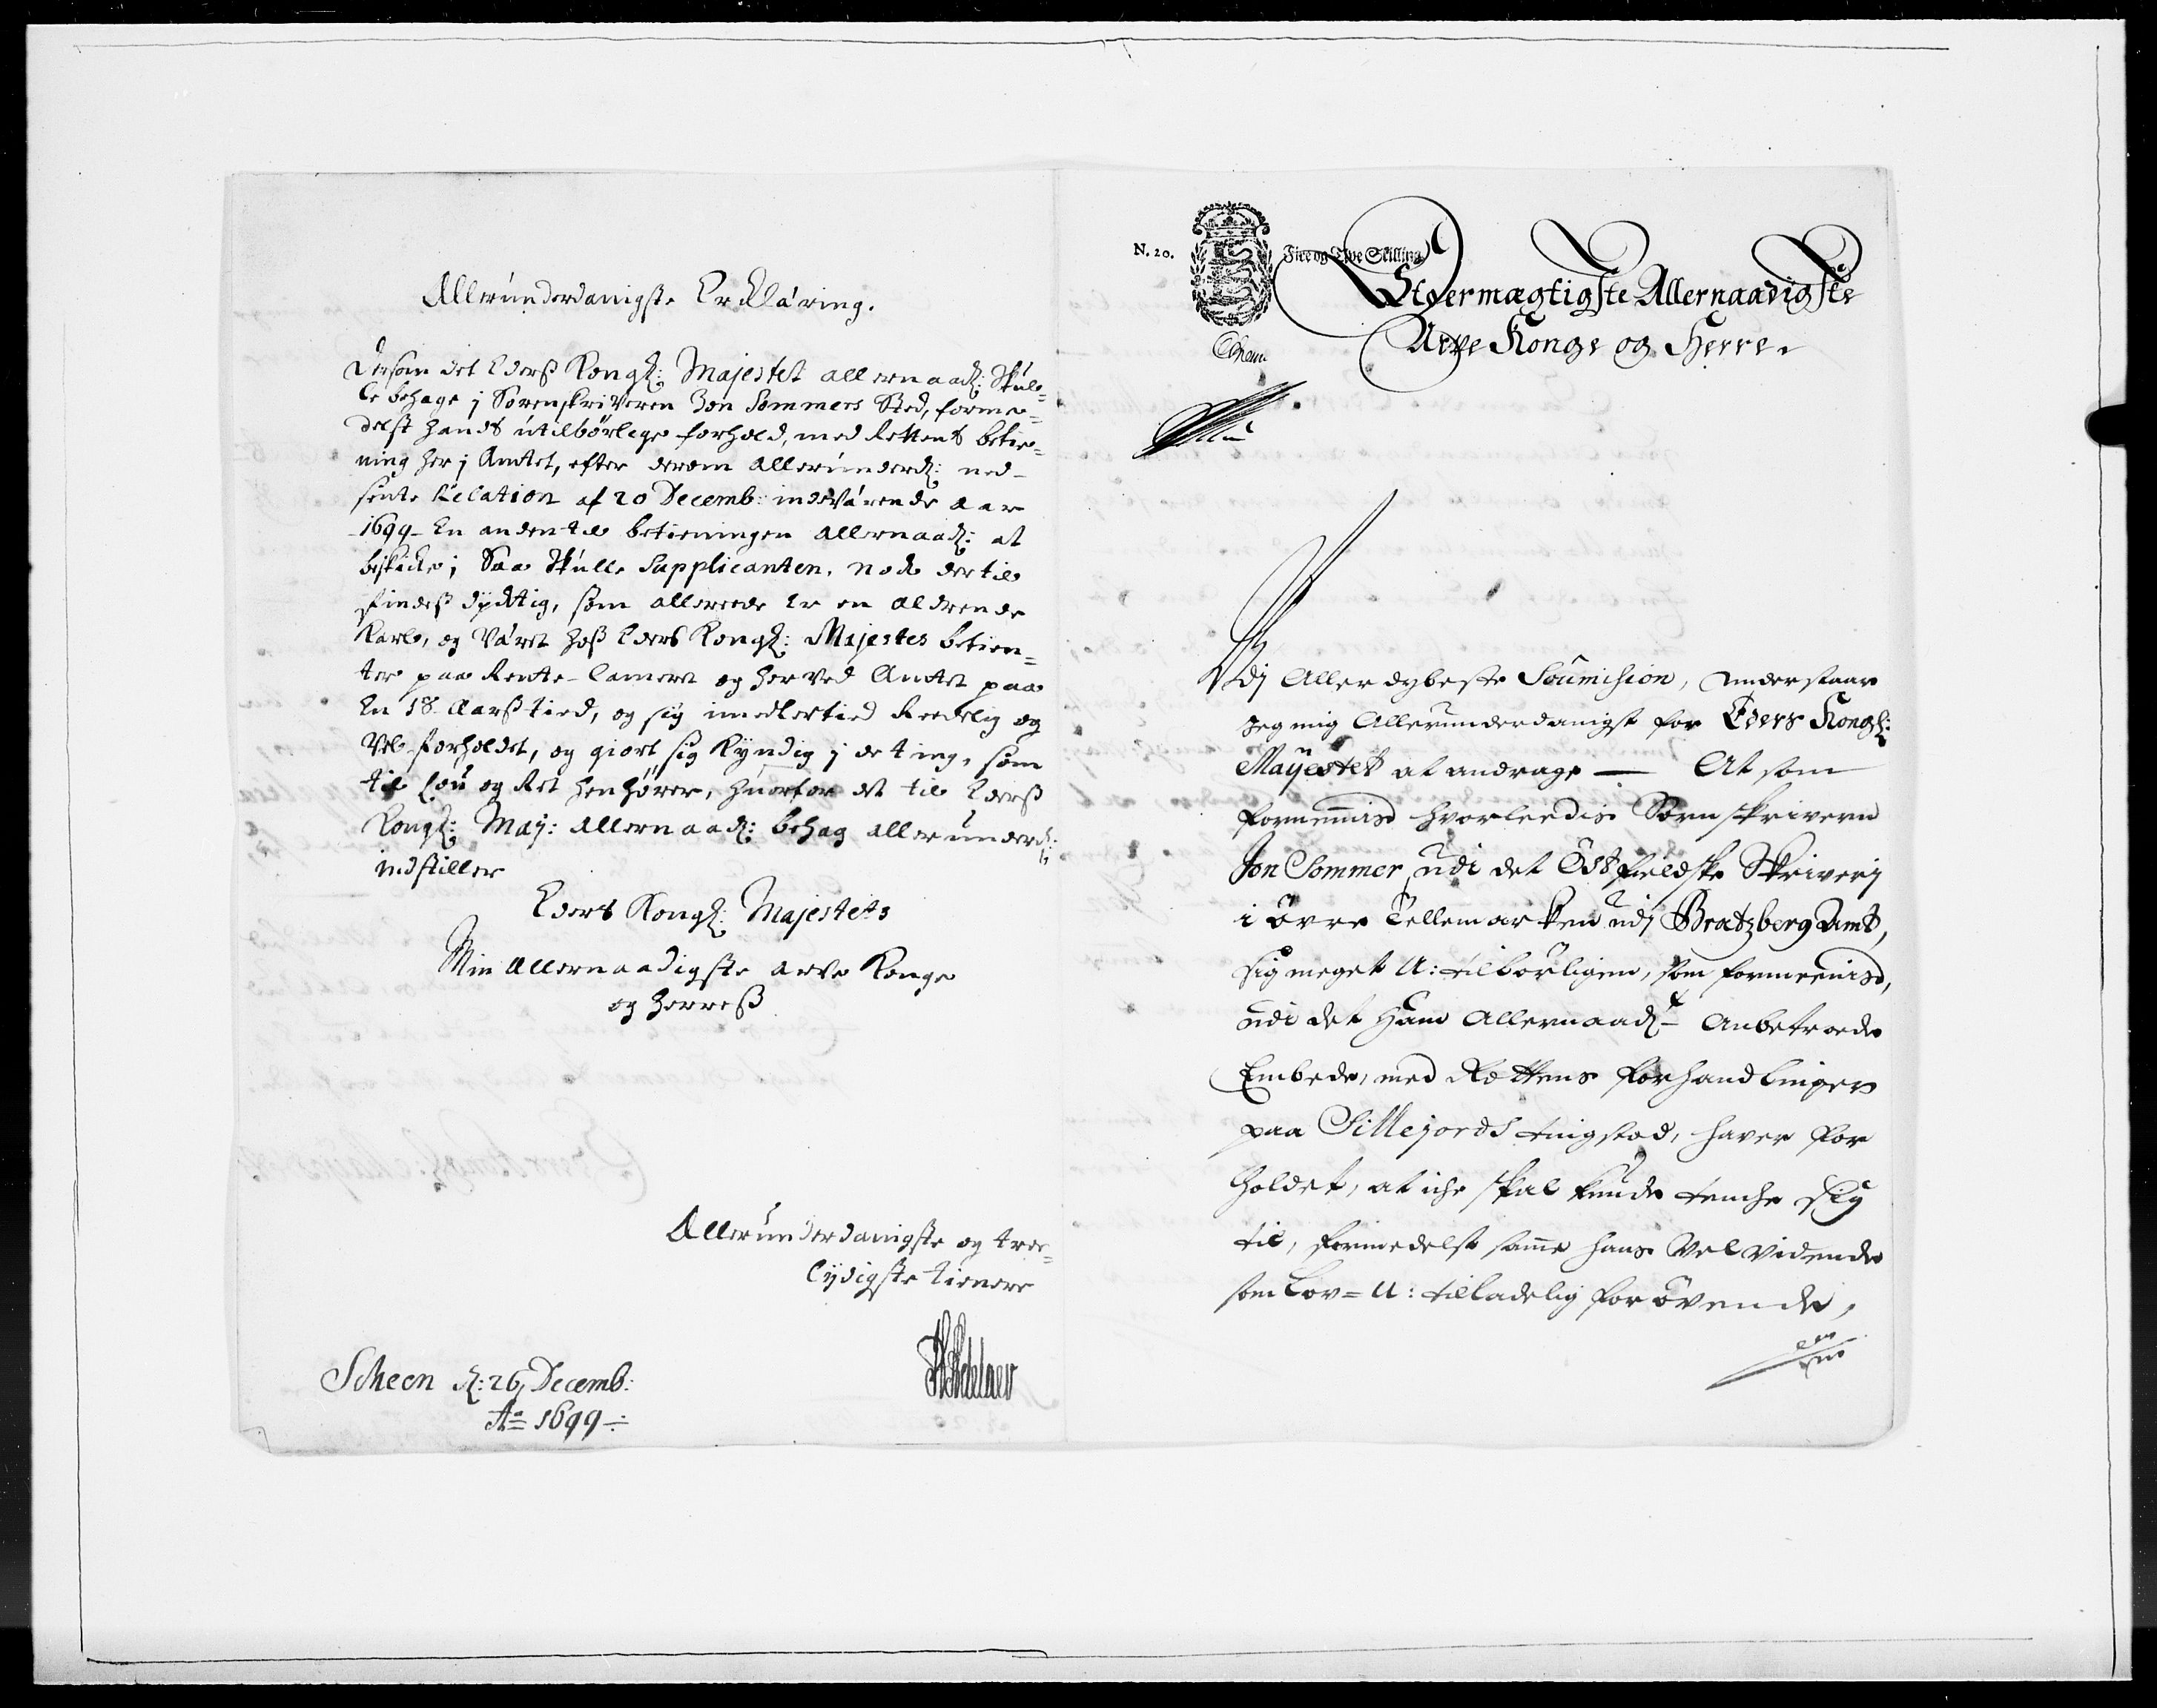 Allerunderdanigste Erklæring.
Dersom det Eders Kongl: Majestet allernaad: Skul-
le behage i Sorenskriveren Jon Sommers Sted, forme-
delst hands utilbørlige forhold, med Rettens betie-
ning her i Amtet, efter derom allerunderd: ned-
sente Relation af 20 Decemb: indeværende aar
1699 En anden til betieningen allernaad: at
beskicke; Saa skulle Supplicanten, nock dertil
findes dyctig, som allerede er en aldrende
Karl, og været hoß Eders Kongl: Majestes betien-
ter paa Rente-Cameret og her ved Amtet paa
En 18 Aarß tied, og sig imidlertied Reedelig og
Vel forholdet, og giort sig Kyndig i de ting, som
til Lou og Ret henhører, huorfor det til Ederß
Kongl: May: allernaad: behag allerunderd:
indstiller
Eders Kongl: Majestets
Min allernaadigste arve Konge
og Herreß
Allerunderdanigste og troe-
lydigste tienere
Scheen d: 26 Decemb:
Ao 1699
N. 20.
Fire og Tive Skilling
Stoermægtigste Allernaadigste
Arve Konge og Herre
Udj Allerdybeste Soumision, understaar
Jeg mig Allerunderdanigst for Eders Kongl:
Mayestet at andrage — At som
fornemmis hvorleedis Sornskriveren
Jon Sommer, udi det Østfieldske Skriverj
i Øvre Tellemarken udj Bratzberg Amt,
sig meget U: tilbørligen, som formeenis,
udi det ham Allernaad: Anbetroede
Embede, med Rettens forhandlinger
paa Sillejords tingsted, haver for
holdet, at iche skal kunde tenche sig
til, formedelst samme hans Velvidende
som lov = U: tilladelig forøvende,